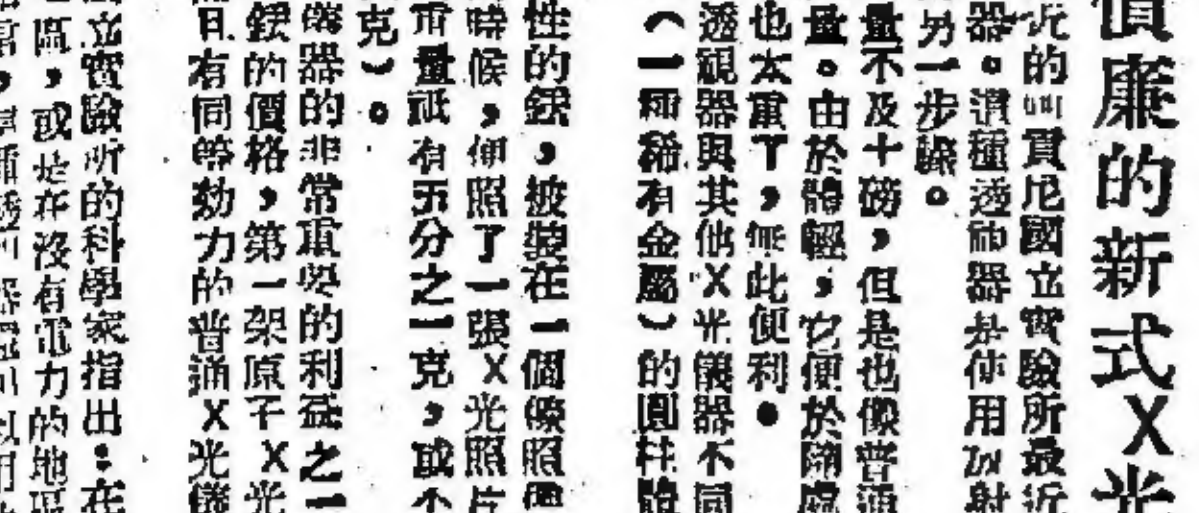 價廉的新式X光
近的 貢尼國立實驗所最近
器。這種透視器是使用放射
另一步驟。
量不及十磅,但是也像普通
量。由於體輕,它便於隨處
也太重了,無此便利。
透視器與其他X光儀器不同
(一種稀有金屬)的圓柱
性的銩,被裝在一個像照
時候,便照了一張X光照片
重量祇有五分之一克,或不
克)。
儀器的非常重要的利益之一
銩的價格,第一架原子X光
且有同等効力的普通X光儀
立實驗所的科學家指出:在
區,或是在沒有電力的地區